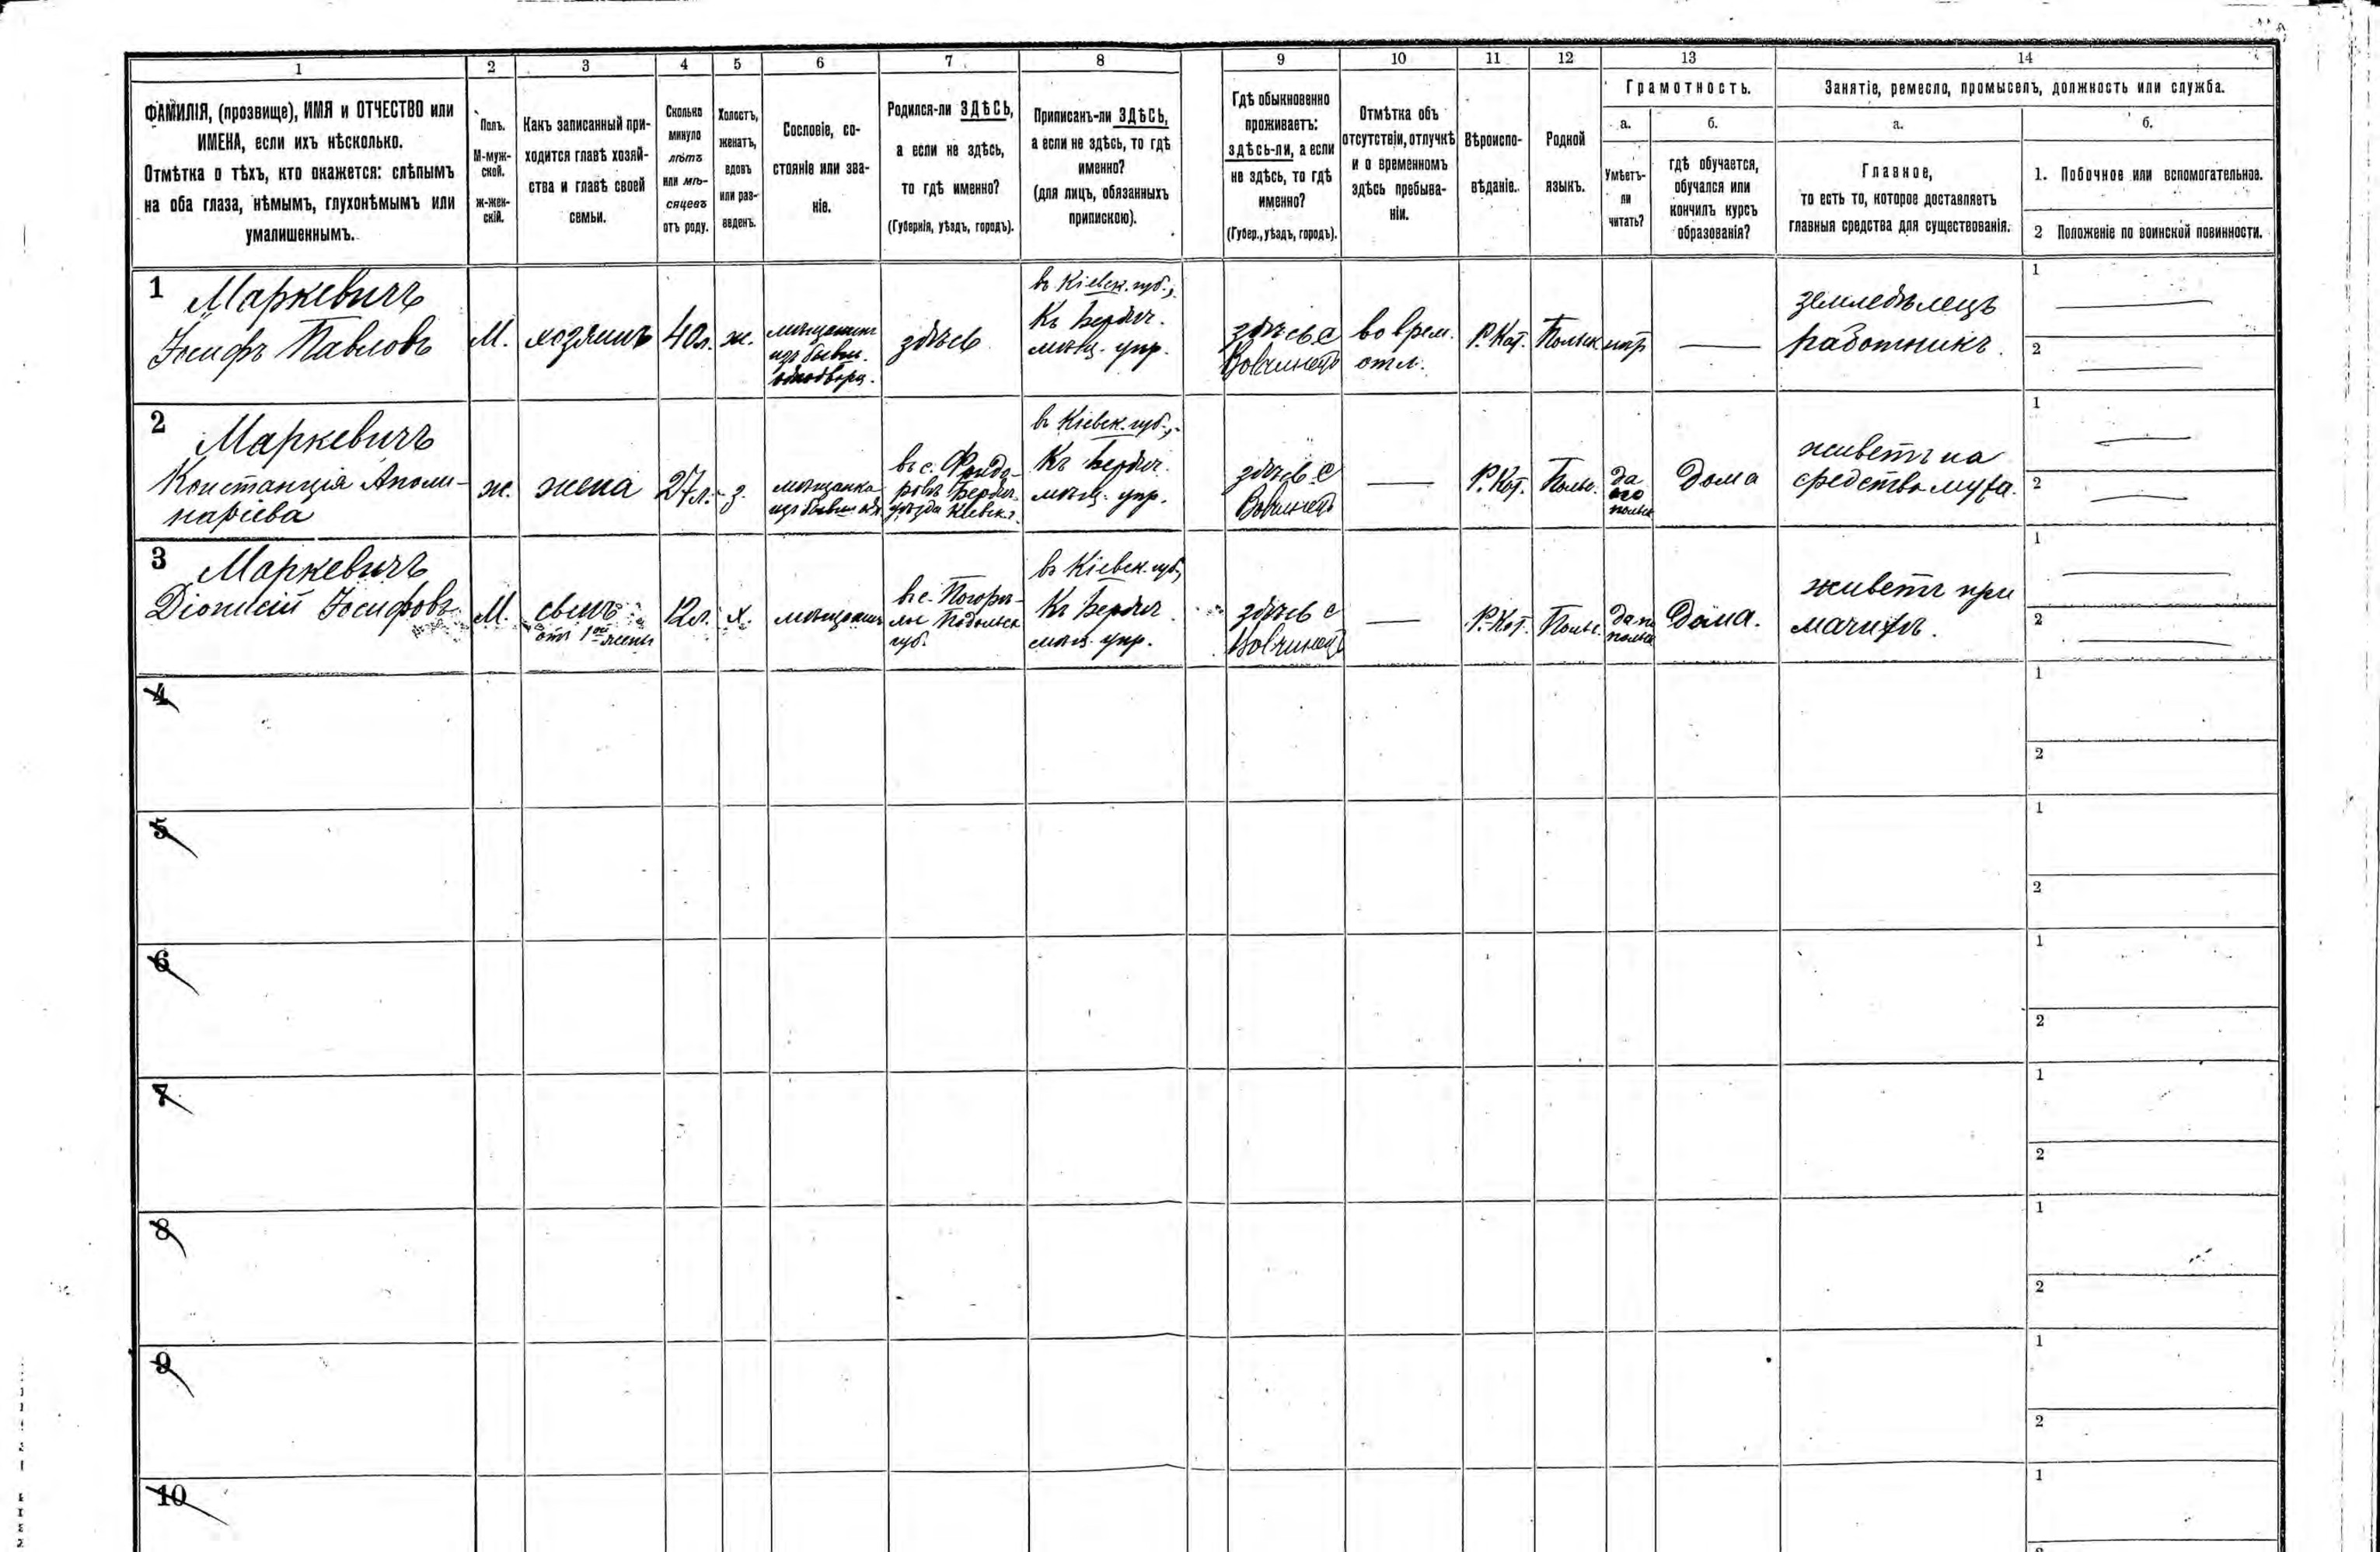 1 2 3 4 5 6 7 8 9 10 11 12 13 14
ФАМИЛІЯ, (прозвище), ИМЯ и ОТЧЕСТВО или
ИМЕНА, если ихъ нѣсколько.
Отмѣтка о тѣхъ, кто окажется: слѣпымъ
на оба глаза, нѣмымъ, глухонѣмымъ или
умалишеннымъ.
Полъ.
М-муж-
ской.
ж-жен-
скій.
Какъ записанный при-
ходится главѣ хозяй-
ства и главѣ своей
семьи.
Сколько
минуло
лѣтъ
или мѣ-
сяцевъ
отъ роду.
Холостъ,
женатъ,
вдовъ
или раз-
веденъ.
Сословіе, со-
стояніе или зва-
ніе.
Родился-ли ЗДѢСЬ,
а если не здѣсь,
то гдѣ именно?
(Губернія, уѣздъ, городъ).
Приписанъ-ли ЗДѢСЬ,
а если не здѣсь, то гдѣ
именно?
(для лицъ, обязанныхъ
припискою).
Гдѣ обыкновенно
проживаетъ:
здѣсь-ли, а если
не здѣсь, то гдѣ
именно?
(Губер., уѣздъ, городъ).
Отмѣтка объ
отсутствіи, отлучкѣ
и о временномъ
здѣсь пребыва-
ніи.
Вѣроиспо-
вѣданіе.
Родной
языкъ.
Грамотность.
а.
Умѣетъ-
ли
читать?
б.
гдѣ обучается,
обучался или
кончилъ курсъ
образованія?
Занятіе, ремесло, промыселъ, должность или служба.
а.
Главное,
то есть то, которое доставляетъ
главныя средства для существованія.
б.
1. Побочное или вспомогательное.
2 Положеніе по воинской повинности.
1 Маркевичъ
Іосифъ Павловъ
М.
хозяинъ
40 л.
ж.
мѣщанинъ
изъ бывш.
однодворц.
здѣсь
въ Кіевск. губ.,
Къ Бердич.
мѣщ. упр.
здѣсь с
Вовчинецъ
во врем.
отл.
Р. Кат.
Польск
нѣт
земледѣлецъ
работникъ.
1
2
2 Маркевичъ
Констанція Аполи-
наріева
ж.
жена
27 л.
з.
мѣщанка
въ с.
Бердич.
уѣзда Кіевск.
въ Кіевск. губ.,
Къ Бердич.
мѣщ. упр.
здѣсь с
Вовчинецъ
Р. Кат.
Польс.
да
по
польск
Дома
живетъ на
средства мужа.
1
2
3 Маркевичъ
Діонисій Іосифовъ
М.
сынъ
отъ 1ой жены
12 л.
х.
мѣщанинъ
въ с. Погорѣ-
лы Подольск
губ.
въ Кіевск. губ,
Къ Бердич
мѣщ. упр.
здѣсь с
Вовчинецъ
Р. Кат.
Польс.
да по
польск
Дома.
живетъ при
мачихѣ.
1
2
4
1
2
5
1
2
6
1
2
7
1
2
8
1
2
9
1
2
10
1